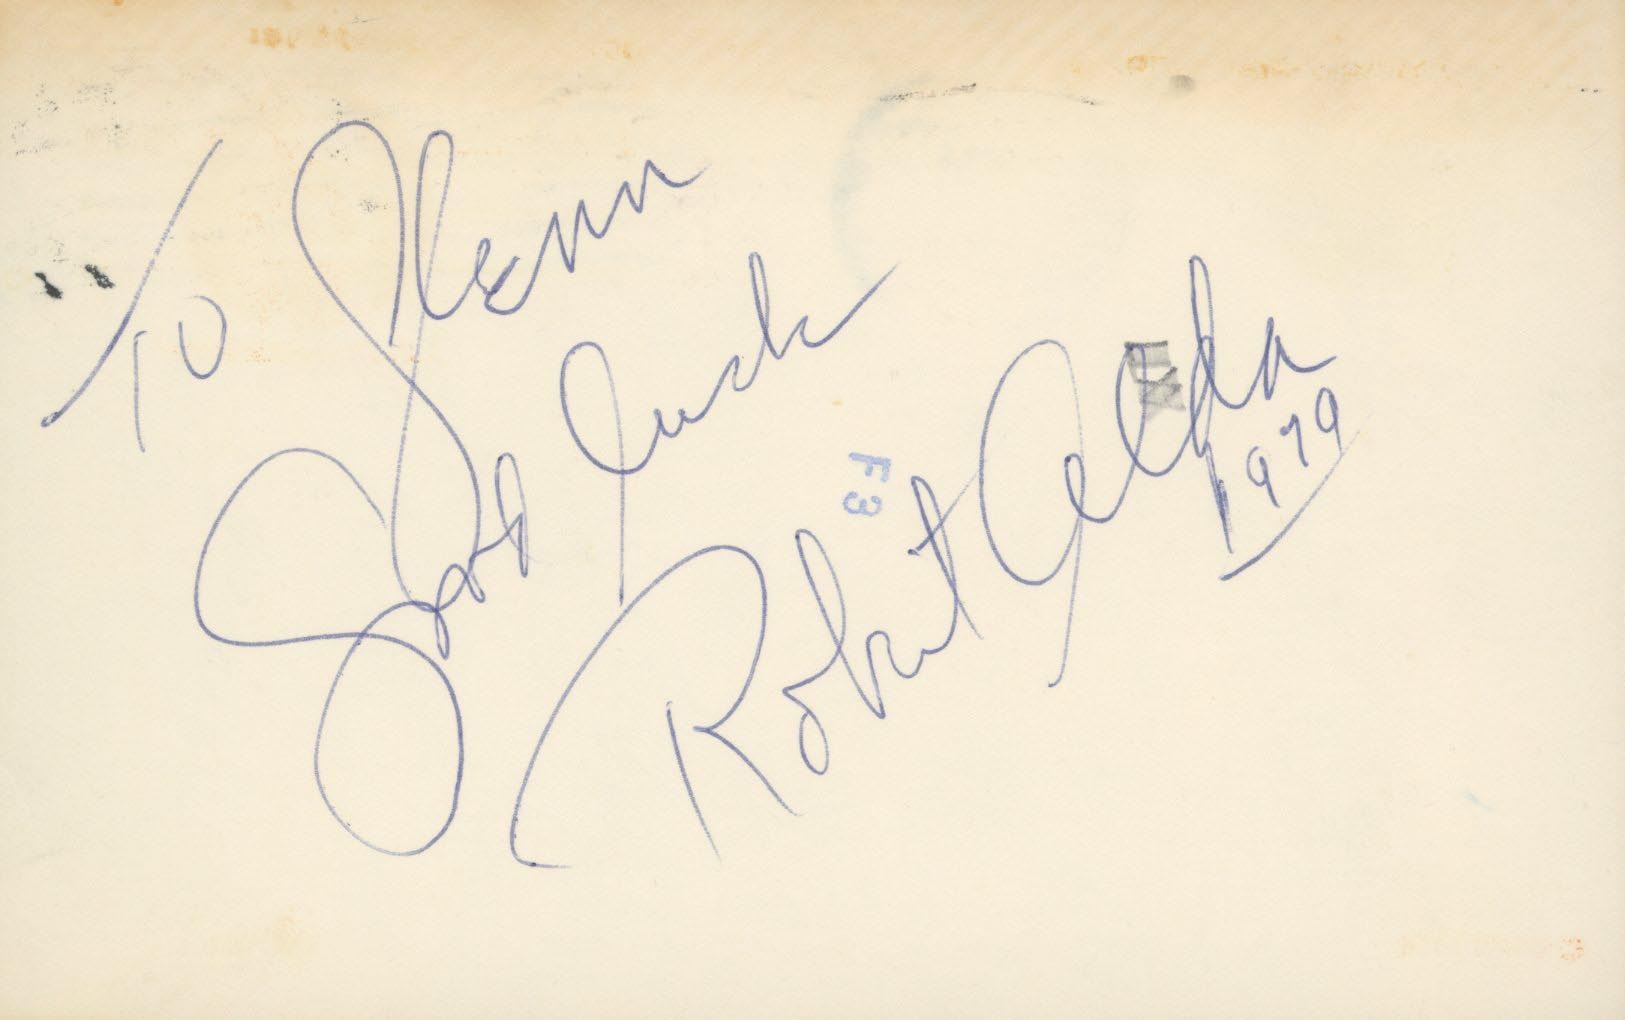 To Glenn
Good luck
Robert Alda
1979
F3